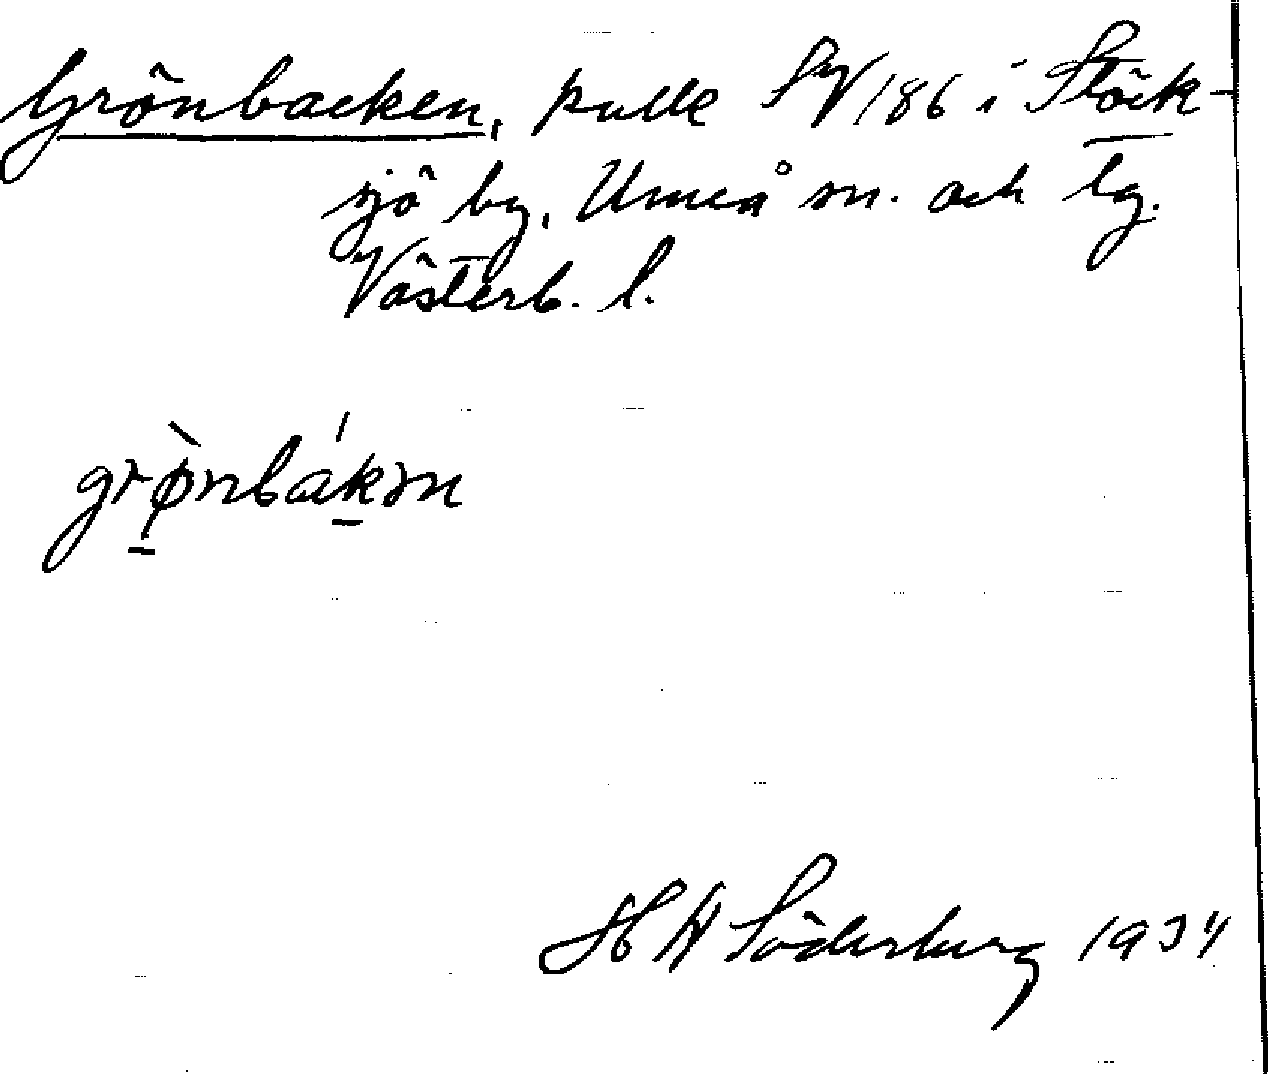 Grönbacken, kulle SV/186 i Stöck-
sjö by, Umeå sn. och tg.
Västerb. l.
grønbákən
H A Söderberg 1934